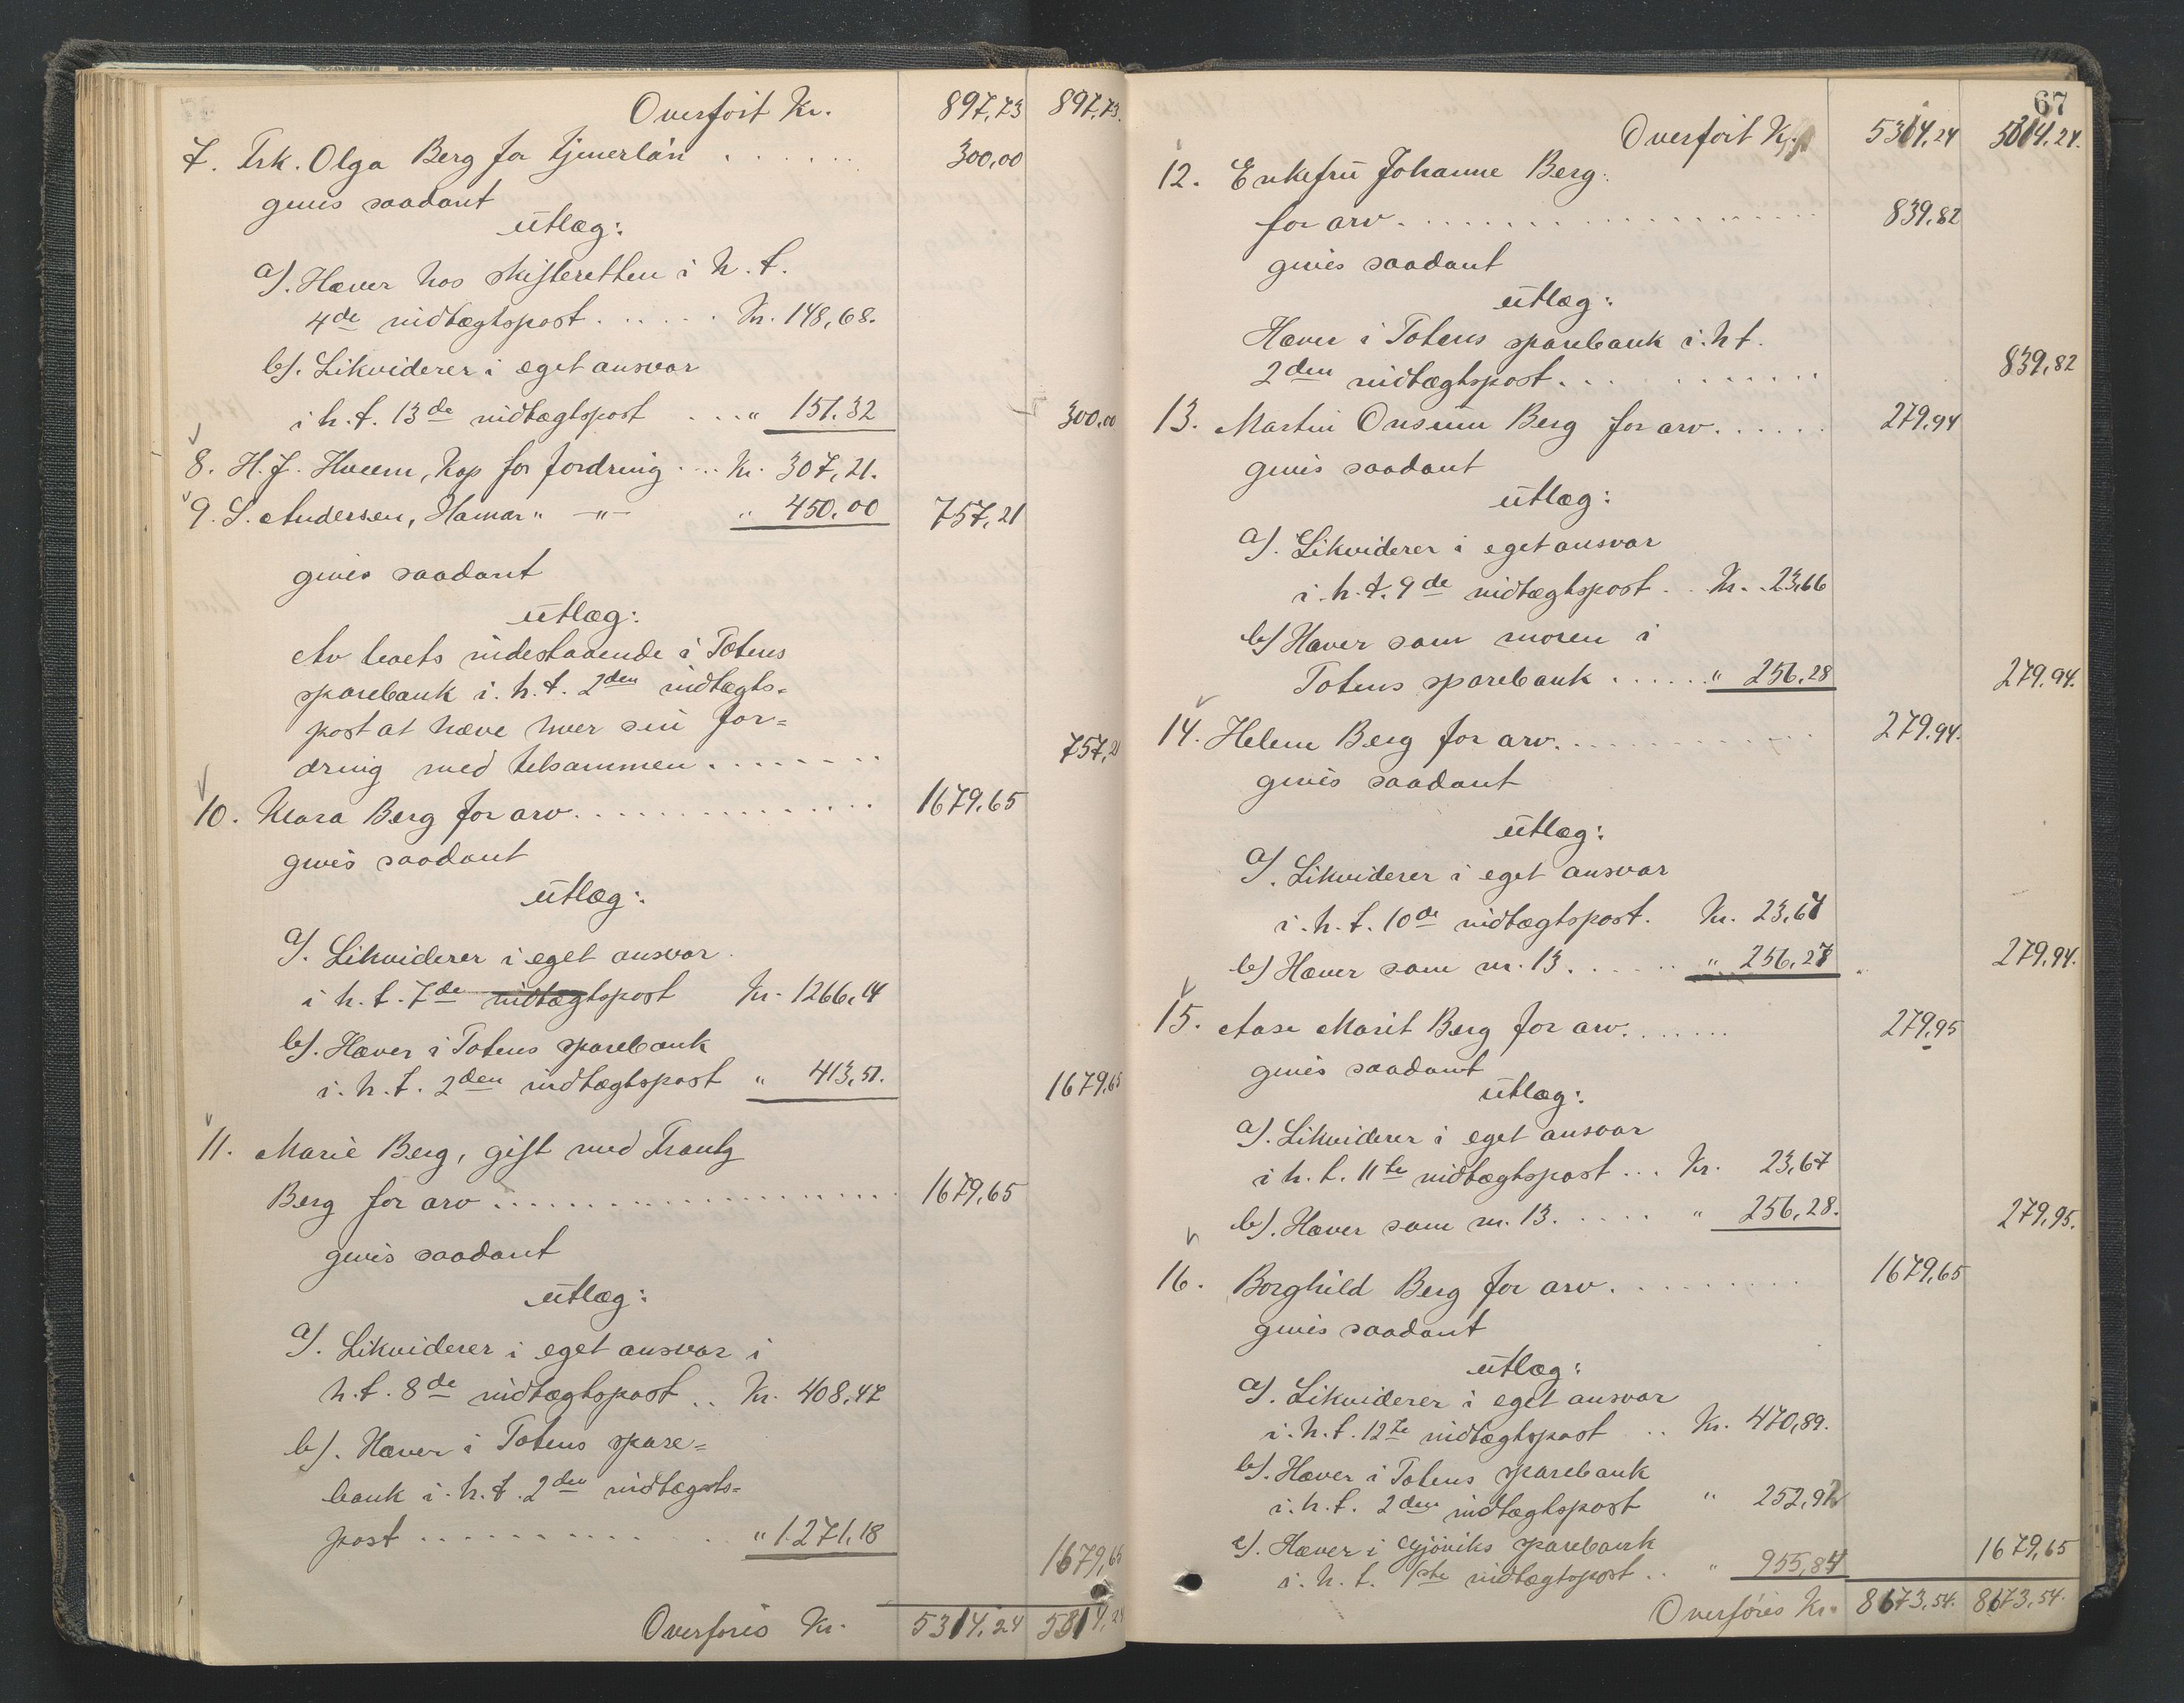 Overført Kr. 897,73 897,73.
7. Frk. Olga Berg for tjenerløn . . . . . . 300,00
givis saadant
utlæg:
a). Hæver hos skifteretten i h. t.
4de indtægtspost . . . . . . Kr. 148,68.
b). Likviderer i eget ansvar
i h. t. 13de indtægtspost . . . " 151.32 300.00
8. H. J. Hveem, Kap for fordring . . . Kr. 307,21.
9. S. Andersen, Hamar " —"— " 450.00 757,21
givis saadant
utlæg:
Av boets indestaaende i Totens
sparebank i. h. t. 2den indtægts=
post at hæve hver sin for=
dring med tilsammen . . . . . . . 757,2
10. Klara Berg for arv . . . . . . . . . . . . . 1679.65
givis saadant
utlæg:
a). Likviderer i eget ansvar
i h. t. 7de indtægtspost Kr. 1266,14
b). Hæver i Totens sparebank
i. h. t. 2den indtægtspost " 413,51. 1679.65
11. Marie Berg, gift med Frantz
Berg for arv . . . . . . . . . . . . . . . . . . 1679,65
givis saadant
utlæg:
a). Likviderer i eget ansvar i
h. t. 8de indtægtspost . . Kr. 408,47
b). Hæver i Totens spare=
bank i. h. t. 2den indtægts=
post . . . . . . . . . . " 1.271,18
1679,65
Overføres Kr. 5314,24 5314,24
67
Overført Kr. 5314,24 5314,24.
12. Enkefru Johanne Berg:
for arv . . . . . . . . . . . . . . . . . . . . 839.82
givis saadant
utlæg:
Hæver i Totens sparebank i. h t.
2den indtægtspost . . . . . . . . . . . . 839,82
13. Martin Onsum Berg for arv . . . . . . 279.94
givis saadant
utlæg:
a). Likviderer i eget ansvar
i. h. t. 9de indtægtspost . . Kr. . 23,66
b) Hæver som moren i
Totens sparebank . . . . . . " 256,28 279.94.
14. Helene Berg for arv. . . . . . . . . . . . 279.94.
givis saadant
utlæg:
a). Likviderer i eget ansvar
i. h. t. 10de indtægtspost. Kr. 23,67
b) Hæver som nr. 13 . . . . . . " 256,27 279.94.
15. Aase Marit Berg for arv. . . . . . . 279,95
givis saadant
utlæg:
a). Likviderer i eget ansvar
i h. t. 11te indtægtspost . . . Kr. 23,67
b). Hæver som nr. 13. . . . . " 256,28. 279,95.
16. Borghild Berg for arv . . . . . . . . . 1679,65
givis saadant
utlæg:
a). Likviderer i eget ansvar
i. h. t. 12te indtægtspost . . Kr. 470,89.
b). Hæver i Totens sparebank
i. h. t. 2den indtægtspost " 252,92
c). Hæver i Gjøviks sparebank
i. h. t. 1ste indtægtspost . . " 955,84 1679,65
Overføres Kr. 8673,54. 8673,54.